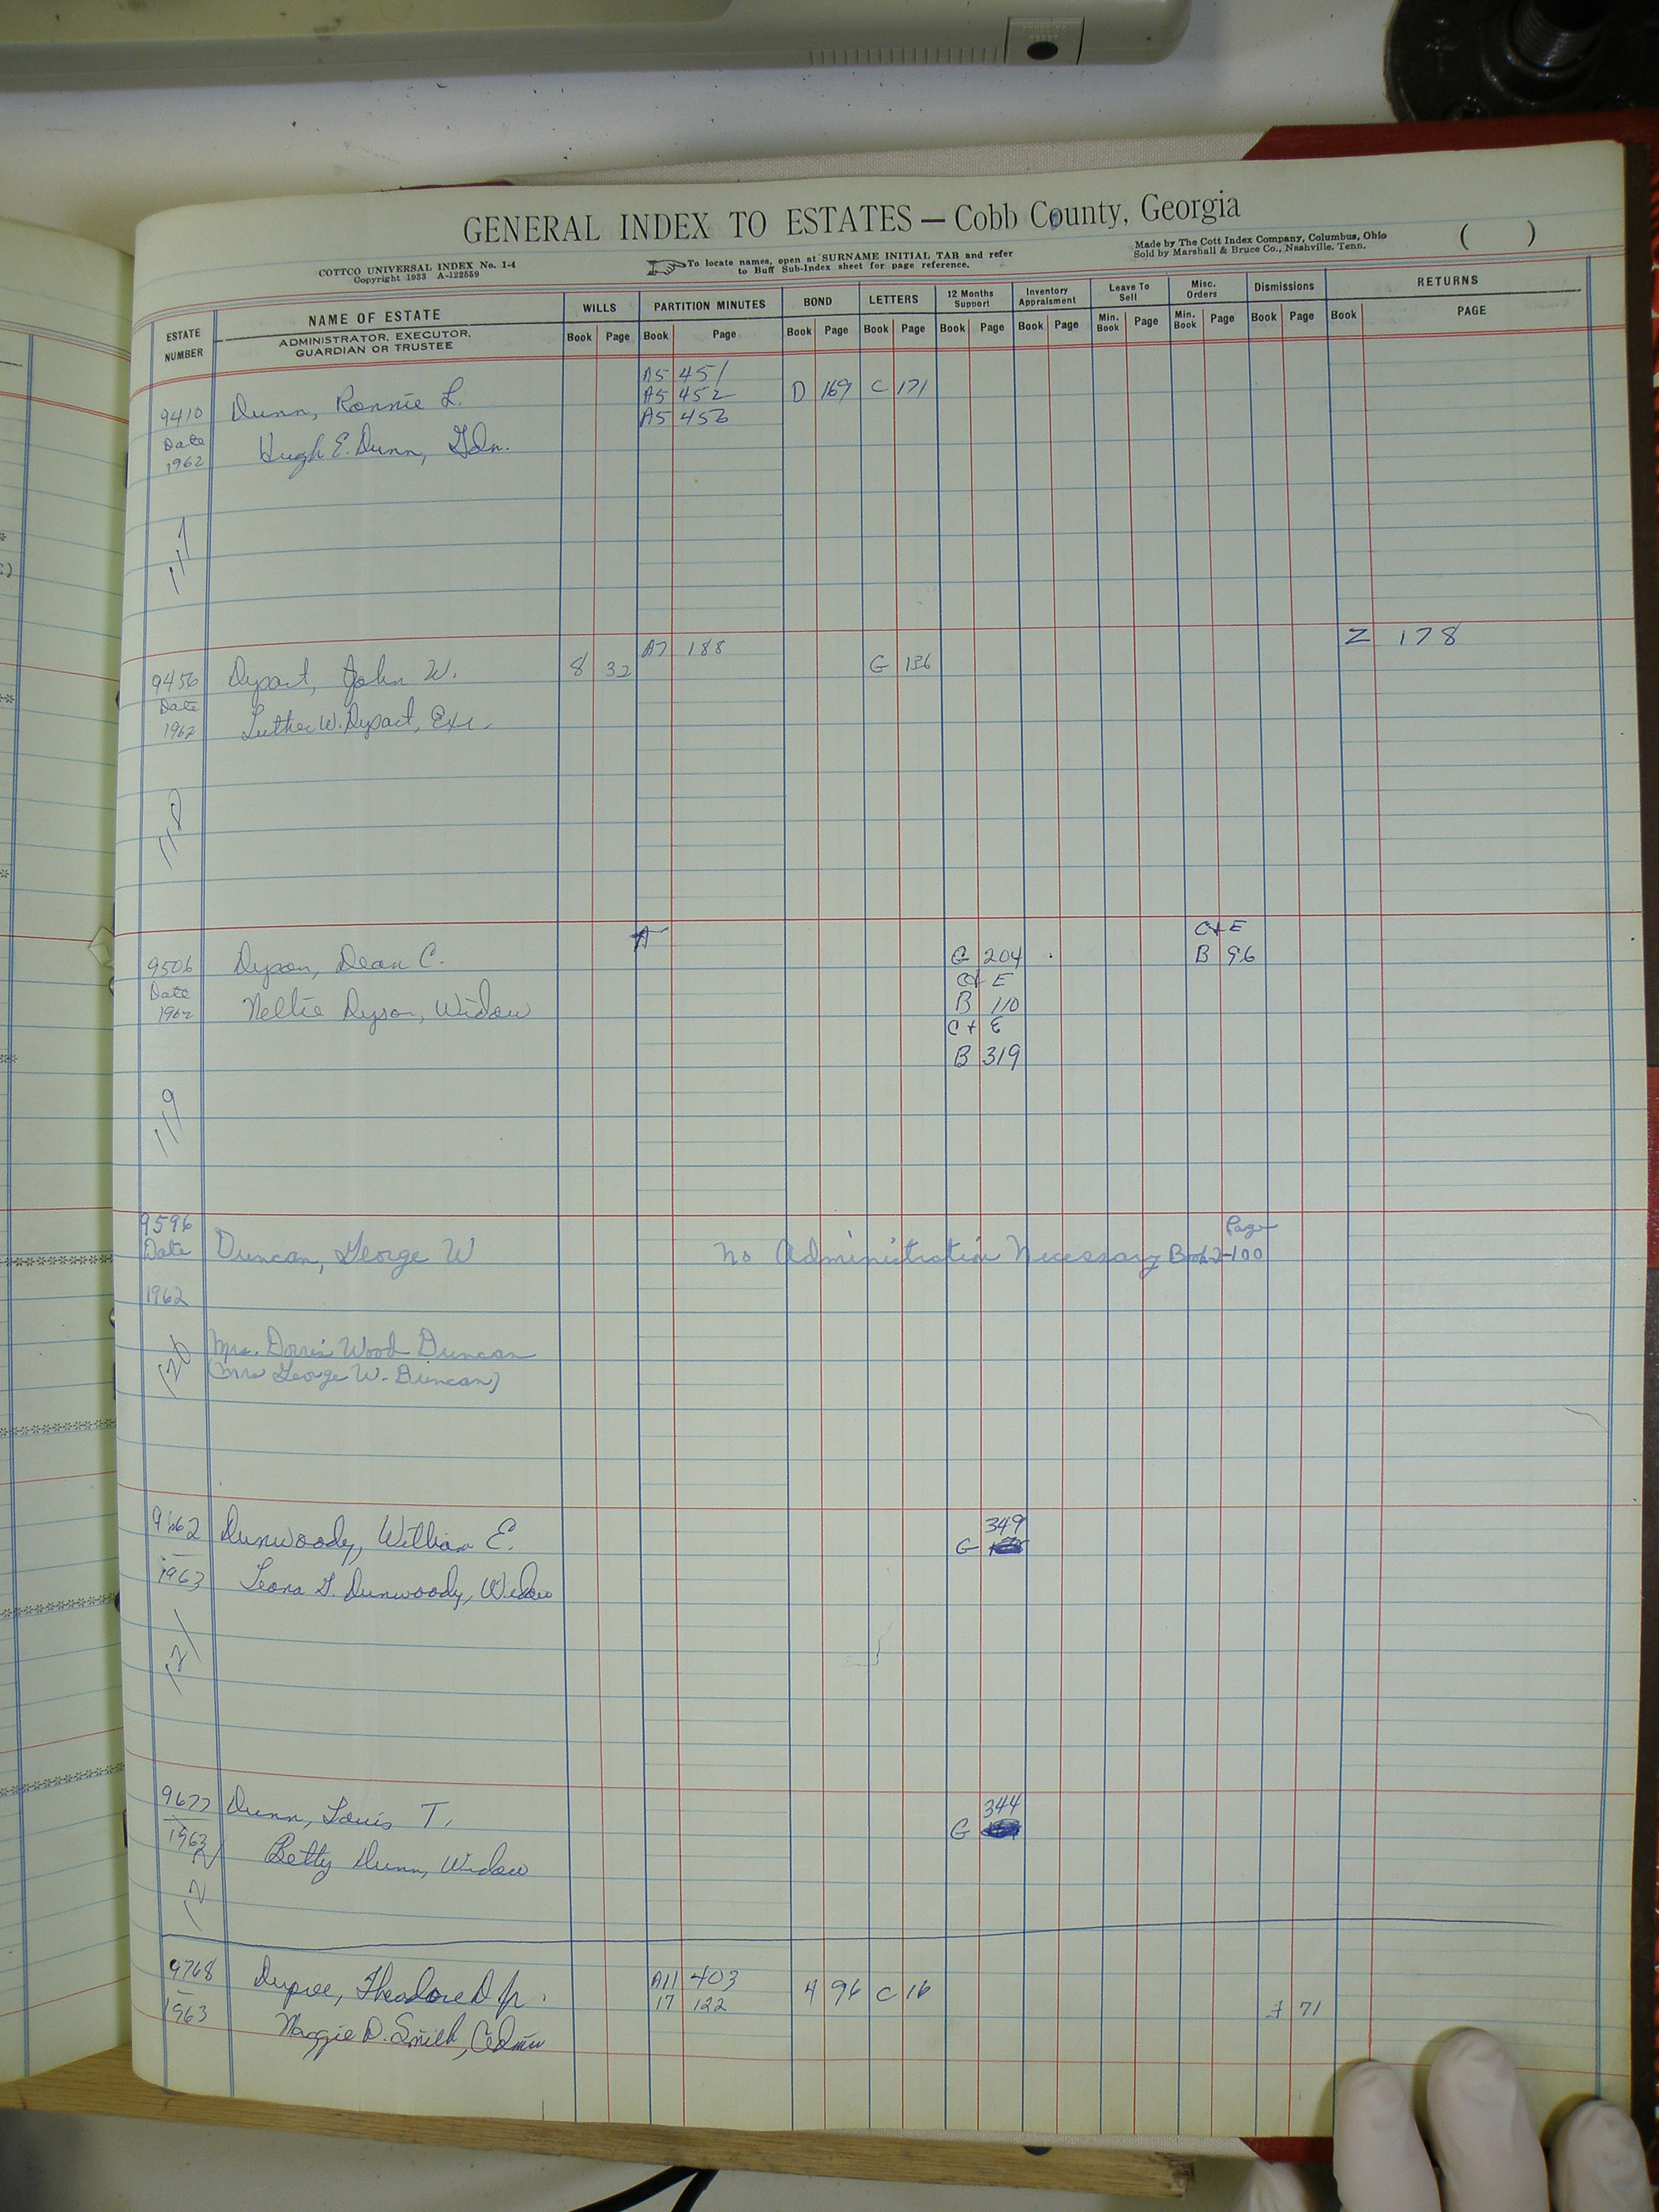 GENERAL INDEX TO ESTATES — Cobb County, Georgia
COTTCO UNIVERSAL INDEX No. 1-4
Copyright 1933 A-122559
To locate names, open at SURNAME INITIAL TAB and refer
to Buff Sub-Index sheet for page reference.
Made by The Cott Index Company, Columbus, Ohio
Sold by Marshall & Bruce Co., Nashville, Tenn.
( )
ESTATE NUMBER
NAME OF ESTATE
ADMINISTRATOR, EXECUTOR,
GUARDIAN OR TRUSTEE
WILLS PARTITION MINUTES BOND LETTERS 12 Months Support Inventory Appraisment Leave To Sell Misc. Orders Dismissions RETURNS
Book Page Book Page Book Page Book Page Book Page Book Page Min. Book Page Min. Book Page Book Page Book PAGE
A5 451
9410 Dunn, Ronnie L. A5 452 D 169 C 171
A5 453
Date
1962 Hugh E. Dunn, Gdn.
117
A7 188 Z 178
9456 Dysart, John W. 8 32 G 136
Date
1962 Luther W. Dysart, Exr.
118
A C+E
9506 Dyson, Dean C. G 204 B 96
Date C+E
1962 Nellie Dyson, Widow B 110
C+E
B 319
119
9596 Page
Date Duncan, George W No Administration Necessary Book 2-100
1962
120 Mrs. Dorris Wood Duncan
(Mrs George W. Duncan)
349
9662 Dunwoody, William E. G
1963 Leona G. Dunwoody, Widow
121
344
9677 Dunn, Louis T. G
1963 Betty Dunn, Widow
12
9768 Dupree, Theodore D Jr. A11 403 4 96 C 16
17 122 71
1963 Maggie D. Smith, Admx